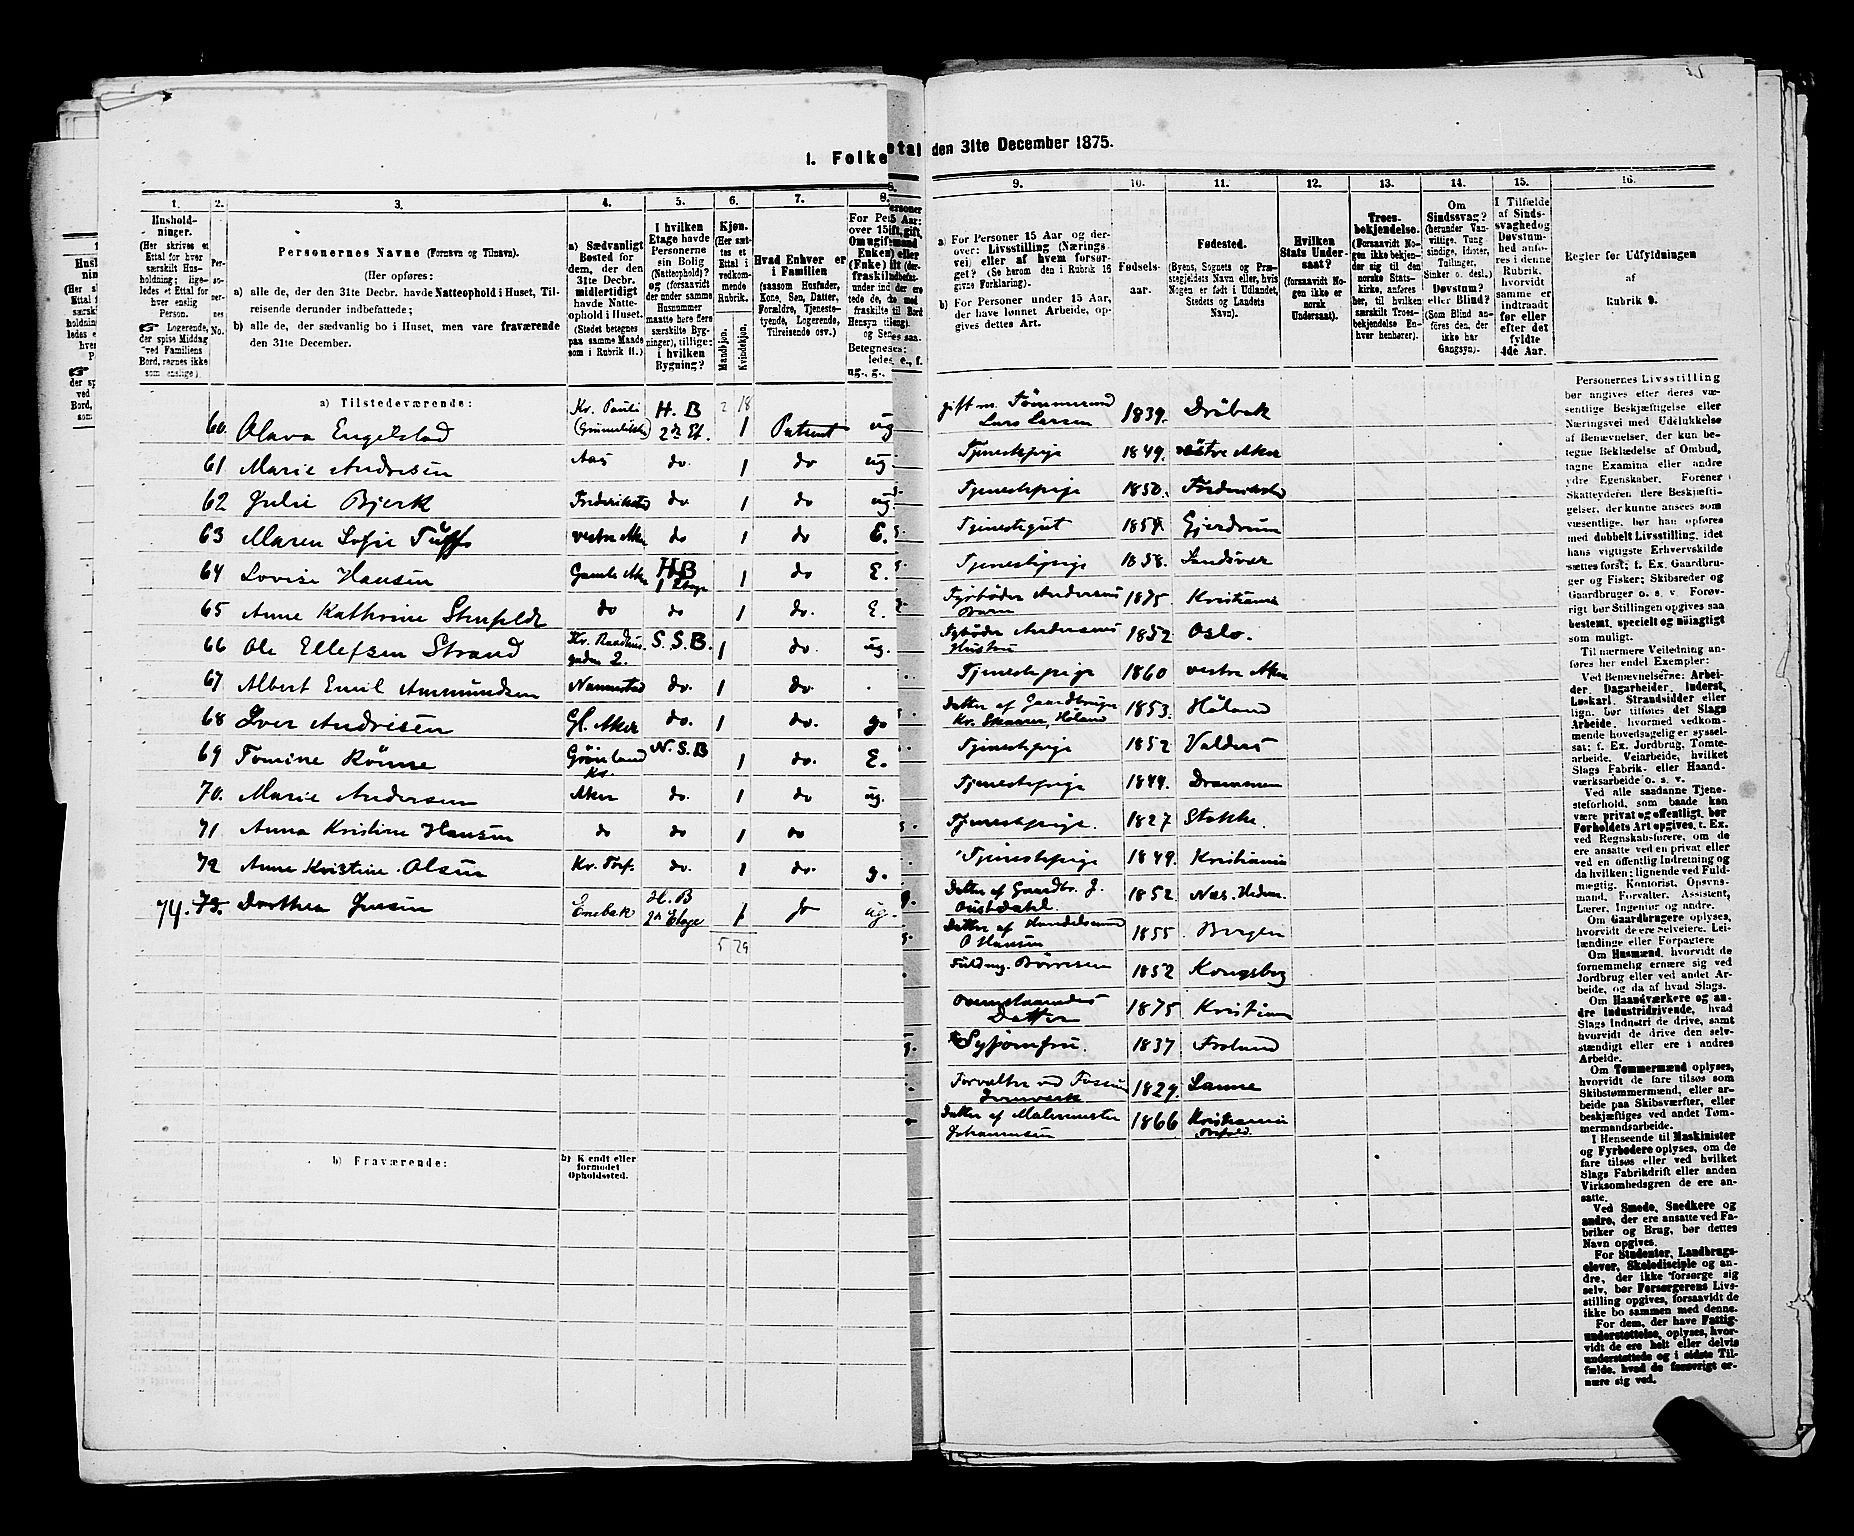 I. Folke
etal den 31te December 1875.
1. 2. 3. 4. 5. 6. 7. 8.
Hushold-
ninger.
(Her skrives et
Ettal for hver
særskilt Hus-
holdning; lige-
ledes et Ettal for
hver enslig
Person.
☞ Logerende,
der spise Middag
ved Familiens
Bord, regnes ikke
som enslige).
Per-
so-
ner-
nes
No.
Personernes Navne (Fornavn og Tilnavn).
(Her opføres:
a) alle de, der den 31te Decbr. havde Natteophold i Huset, Til-
reisende derunder indbefattede;
b) alle de, der sædvanlig bo i Huset, men vare fraværende
den 31te December.
a) Sædvanligt
Bosted for
dem, der den
31te Decbr.
midlertidigt
havde Natte-
ophold i Huset.
(Stedet betegnes
paa samme Maade
som i Rubrik 11.)
I hvilken
Etage havde
Personerne
sin Bolig
(Natteophold)?
og (forsaavidt
der under samme
Husnummer
maatte høre flere
særskilte Byg-
ninger), tillige:
i hvilken
Bygning?
Kjøn.
(Her sæt-
tes et
Ettal i
vedkom-
mende
Rubrik.
Mandkjøn.
Kvindekjøn.
Hvad Enhver er
i Familien
(saasom Husfader,
Kone, Søn, Datter,
Forældre, Tjeneste-
tyende, Logerende,
Tilreisende osv.)
a) Tilstedeværende:
60. Olava Engelstad Kv. Pauli (Grünerløkke) H. B 2den Et. 1 Patient ug
61 Marie Andresen Aas do. 1 do ug
62 Julie Bjerk Frederikstad do 1 do ug
63 Maren Sofie vestre Aker do 1 do E.
64 Lovise Hansen Gamle Aker H.B 1 Etage 1 do E.
65 Anne Kathrine do do 1 do. E.
66 Ole Ellefsen Strand S. S. B. 1 do. ug.
67 Albert Emil Ammundsen Nannestad do. 1 do. .
68 Iver Andresen Gl. Aker do. 1 do. g.
69 Tomine Rönne Grönland Kr. N. S. B 1 do. E.
70. Marie Andersen Aker do. 1 do ug.
71 Anna Kristine Hansen do do 1 do
72 Anne Kristine Olsen Kv. do. 1 do. g.
74. 73. Dorthea Jensen Enebak H. B 2den Etage 1 do ug.
5 29
b) Fraværende:
b) Kjendt eller
formodet
Opholdssted.
9. 10. 11. 12. 13. 14. 15. 16.
a) For Personer 15 Aar og der-
over: Livsstilling (Nærings-
vei) eller af hvem forsør-
get? (Se herom den i Rubrik 16
givne Forklaring).
b) For Personer under 15 Aar,
der have lønnet Arbeide, op-
gives dettes Art.
Fødsels-
aar.
Fødested.
(Byens, Sognets og Præ-
stegjeldets Navn eller, hvis
Nogen er født i Udlandet,
Stedets og Landets
Navn).
Hvilken
Stats Under-
saat?
(forsaavidt No-
gen ikke er
norsk
Undersaat).
Troes-
bekjendelse.
(Forsaavidt No-
gen ikke bekjen-
der sig til den
norske Stats-
kirke, anføres
her, til hvilken
særskilt Troes-
bekjendelse En-
hver henhører).
Om
Sindssvag?
(herunder Van-
vittige, Tung
sindige, Idioter,
Tullinger,
Sinker o. desl.)
Døvstum?
eller Blind?
(Som Blind an-
føres den, der
ikke har
Gangsyn).
I Tilfælde
af Sinds-
svaghed og
Døvstum-
hed anfø-
res i denne
Rubrik,
hvorvidt
samme er
indtraadt
før eller
efter det
fyldte
4de Aar.
Regler for Udfyldningen
af
Rubrik 9.
gift m. Tømmermand
Lars Larsen 1839. Dröbak
Tjenestepige 1849. vestre Aker
Tjenestepige 1850. Frederikstad
Tjenestegut 1857. Gjerdrum
Tjenestepige 1858. Sandsvær
Fyrböder Andersens
Barn 1875 Kristiania
Fyrböder Andersens
Hustru 1852 Oslo.
Tjenestepige 1860 vestre Aker
Datter af Gaardbruger
Kr. Skaarer, Höland 1853. Höland
Tjenestepige 1852 Valders
Tjenestepige 1844. Drammen
Tjenestepige. 1827 Stokke.
Tjenestepige 1849. Kristiania
Datter af Gaardbr. J.
1852 Næs. Hedem.
Datter af Handelsmand
O Hansen 1855 . Bergen
Fuldmg. Börresen 1852 Kongsberg
ovenstaaendes
Datter 1875 Kristiania
Syjomfru. 1837 Froland
Forvalter ved Fossum
Jernværk 1829. Sanne
Datter af Malermester
Johannesen 1866 Kristiania
Personernes Livsstilling
bør angives efter deres væ-
sentlige Beskjæftigelse eller
Næringsvei med Udelukkelse
af Benævnelser, der kun be-
tegne Beklædelse af Ombud,
tagne Examina eller andre
ydre Egenskaber. Forener
Skatteyderen flere Beskjæfti-
gelser, der kunne ansees som
væsentlige, bør han opføres
med dobbelt Livsstilling, idet
hans vigtigste Erhvervskilde
sættes først; f. Ex. Gaardbru-
ger og Fisker; Skibsreder og
Gaardbruger o. s. v. Forøv-
rigt bør Stillingen opgives saa
bestemt, specielt og nøiagtigt
som muligt.
Til nærmere Veiledning an-
føres her endel Exempler:
Ved Benævnelserne: Arbei-
der, Dagarbeider, Inderst,
Løskarl, Strandsidder eller
lign. bør tilføies det Slags
Arbeide, hvormed vedkom-
mende hovedsagelig er syssel-
sat; f. Ex. Jordbrug, Tomte-
arbeide, Veiarbeide, hvilket
Slags Fabrik- eller Haand-
værksarbeide o. s. v.
Ved alle saadanne Tjene-
steforhold, som baade kan
være privat og offentligt, bør
Forholdets Art opgives, t. Ex.
ved Regnskabsførere, om de
ere ansatte ved en privat eller
ved en offentlig Indretning og
da hvilken; lignende ved Fuld-
mægtig, Kontorist, Opsyns-
mand, Forvalter, Assistent,
Lærer, Ingeniør og andre.
Om Gaardbrugere oplyses,
hvorvidt de ere Selveiere, Lei-
lændinge eller Forpagtere
Om Husmænd, hvorvidt de
fornemmelig ernære sig ved
Jordbrug eller ved andet Ar-
beide, og da af hvad Slags.
Om Haandværkere og an-
dre Industridrivende, hvad
Slags Industri de drive, samt
hvorvidt de drive den selv-
stændigt eller ere i andres
Arbeide.
Om Tømmermænd oplyses,
hvorvidt de fare tilsøs som
Skibstømmermænd, eller ar-
beide paa Skibsværfter, eller
beskjæftiges ved andet Tøm-
mermandsarbeide.
I Henseende til Maskinister
og Fyrbødere oplyses, om de
fare tilsøs eller ved hvilket
Slags Fabrikdrift eller anden
Virksomhedsgren de ere an-
satte.
Ved Smede, Snedkere og
andre, der ere ansatte ved Fa-
briker og Brug, bør dettes
Navn opgives.
For Studenter, Landbrugs-
elever, Skoledisciple og an-
dre, der ikke forsørge sig
selv, bør Forsørgerens Livs-
stilling opgives, forsaavidt de
ikke bo sammen med denne.
For dem, der have Fattig-
understøttelse, oplyses, hvor-
vidt de ere helt eller delvis
understøttede og i sidste Til-
fælde, hvad de forøvrigt er-
nære sig ved.